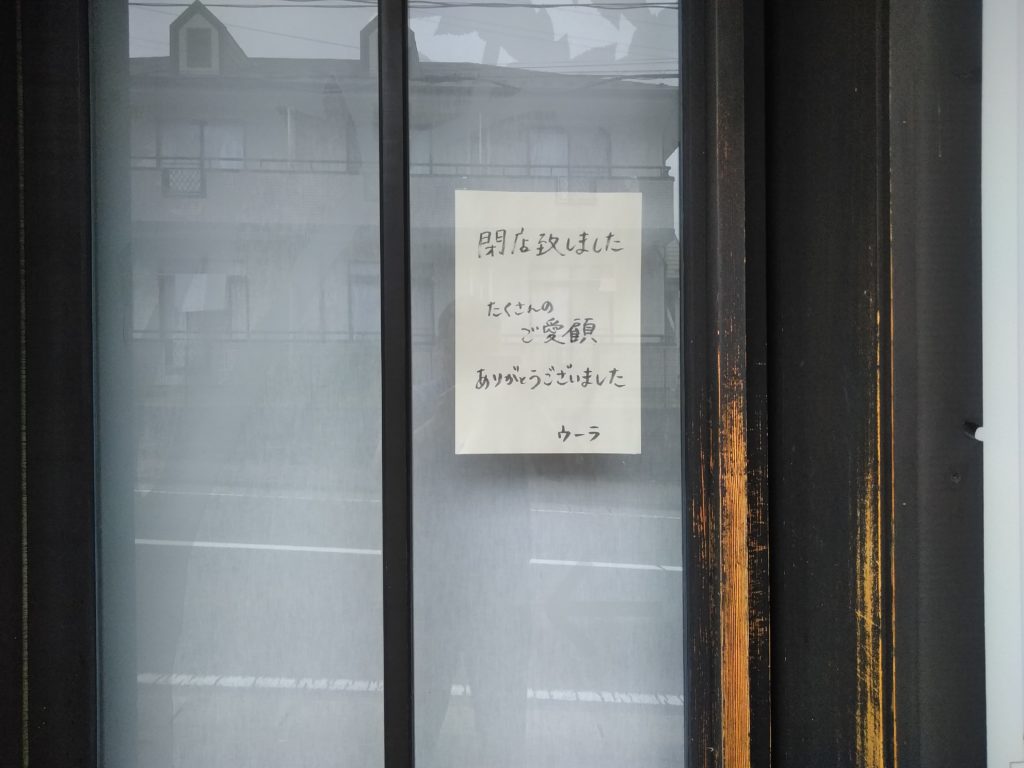 閉店致しました
たくさんの
ご愛顧
ありがとうございました
ウーラ